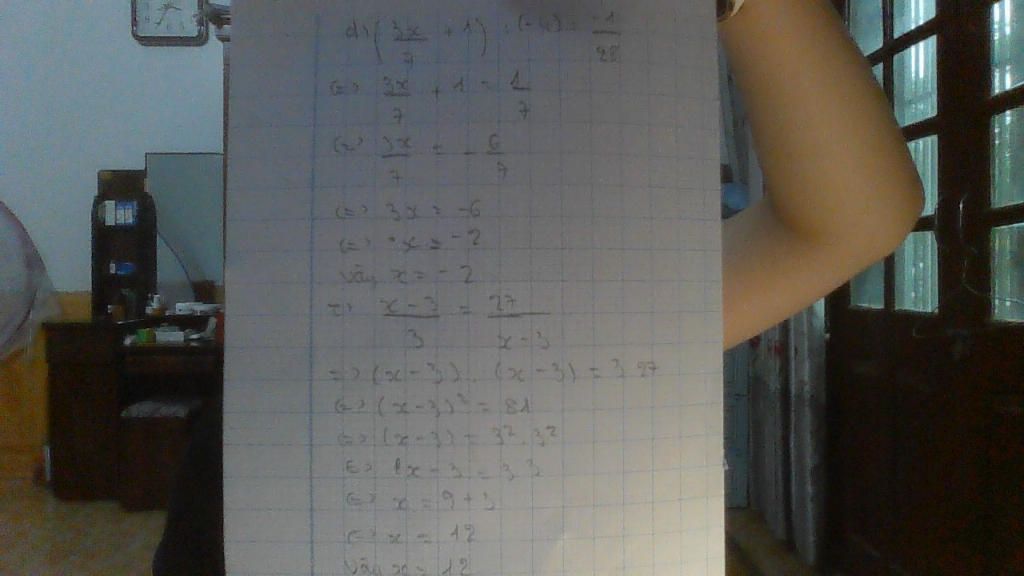 d) (3x/7 + 1) : (-4) = -1/28
<=> 3x/7 + 1 = 1/7
<=> 3x/7 = -6/7
<=> 3x = -6
<=> x = -2
Vậy x = -2
=> x-3/3 = 27/x-3
=> (x-3) . (x-3) = 3.27
<=> (x-3)² = 81
<=> (x-3) = 3² . 3²
<=> x-3 = 3.3
<=> x = 9+3
<=> x = 12
Vậy x = 12